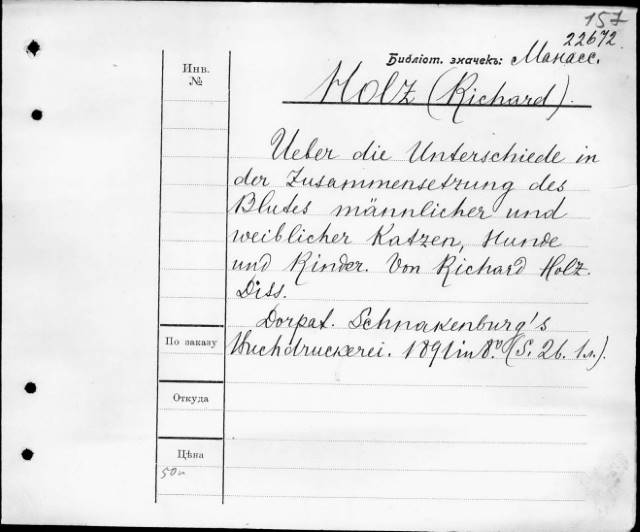 157
22672.
Библіот. значекъ: Манасс.
Инв.
№
Holz (Richard).
Ueber die Unterschiede in
der Zusammensetzung des
Blutes männlicher und
weiblicher Katzen, Hunde
und Rinder. Von Richard Holz.
Diss.
Dorpat. Schnakenburg's
Buchdruckerei. 1891 in 8º (S. 26. 1 л.).
По заказу
Откуда
Цѣна